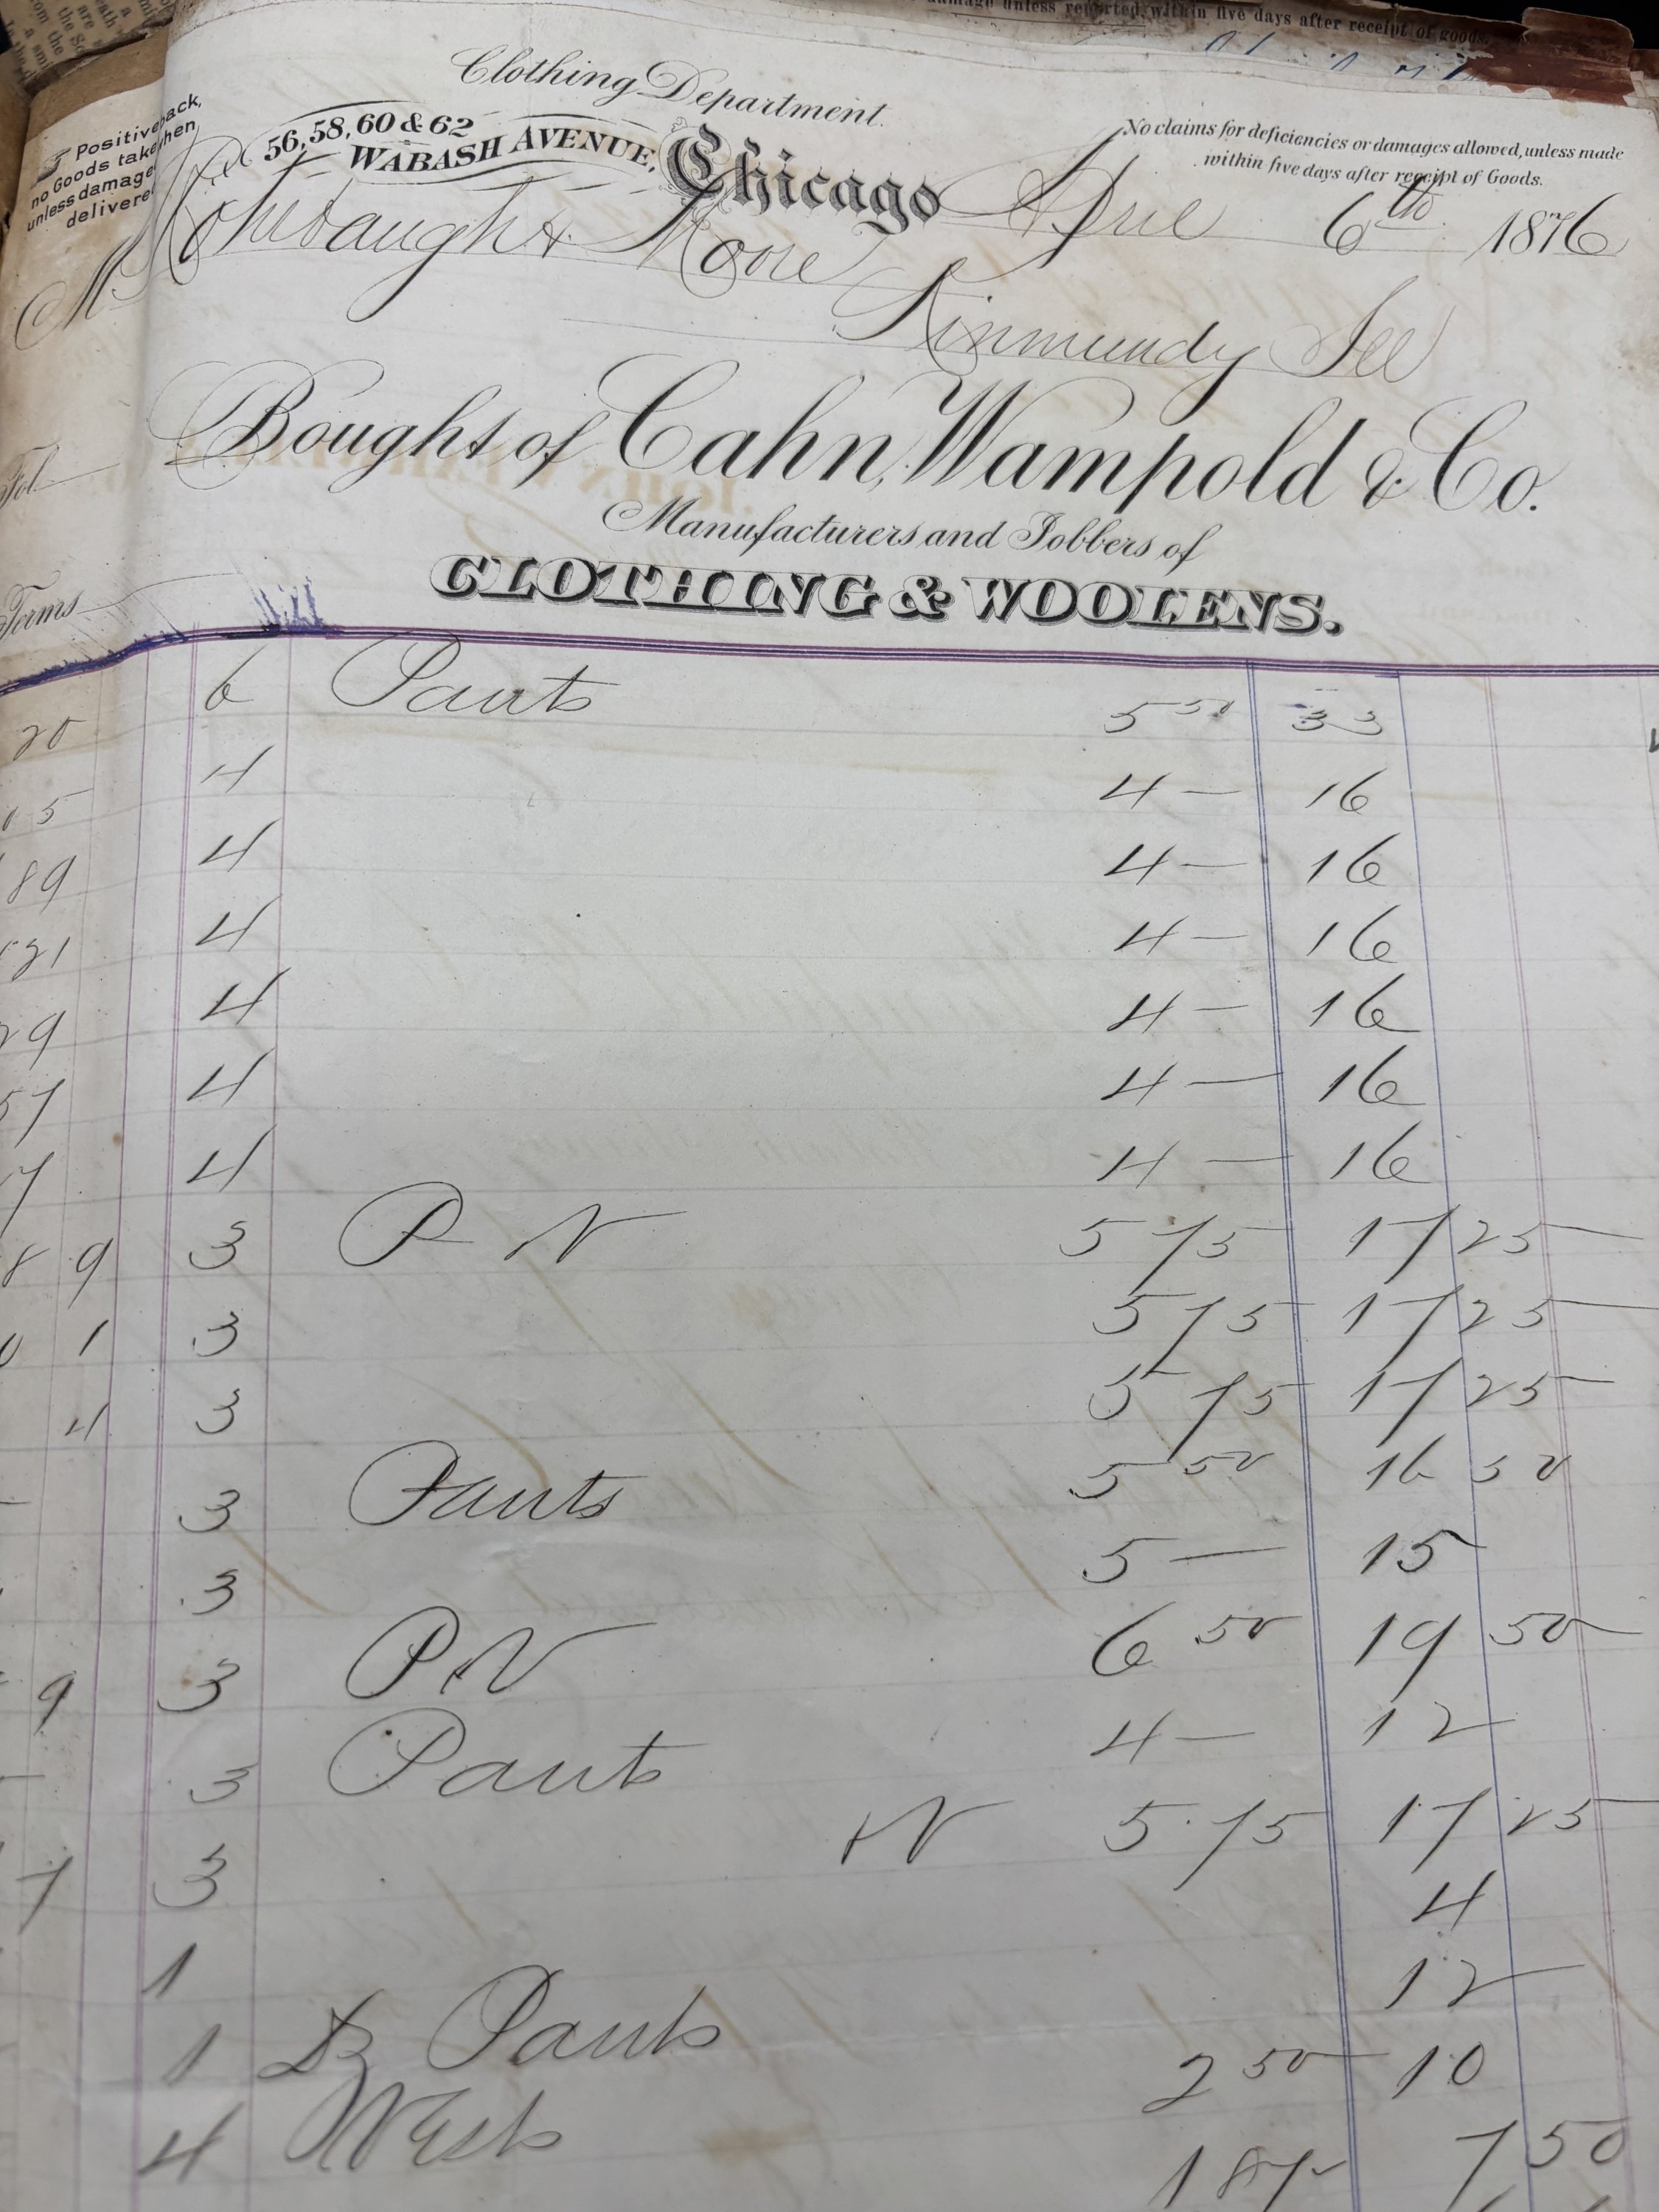 damage unless reported within five days after receipt of goods.
Clothing Department.
56, 58, 60 & 62
WABASH AVENUE,
Chicago
No claims for deficiencies or damages allowed, unless made
within five days after receipt of Goods.
Positive
no Goods take back,
unless damage when
delivere
April 6th 1876
M Rohrbaugh & Moore
Kinmundy Ill
Bought of Cahn, Wampold & Co.
Manufacturers and Jobbers of
CLOTHING & WOOLENS.
Fol
Terms
6 Pants 5 50 33
20
4 4 — 16
15
4 4 — 16
89
4 4 — 16
21
4 4 — 16
29
4 4 — 16
57
4 4 — 16
7
3 P V 5 75 17 25
8 9
3 5 75 17 25
0 1
3 5 75 17 25
4
3 Pants 5 50 16 50
3 5 — 15
3 P V 6 50 19 50
9
3 Pants 4 — 12
3 V 5 75 17 25
7
1 4
1 Dz Pants 12
4 Vests 2 50 10
1 87 7 50